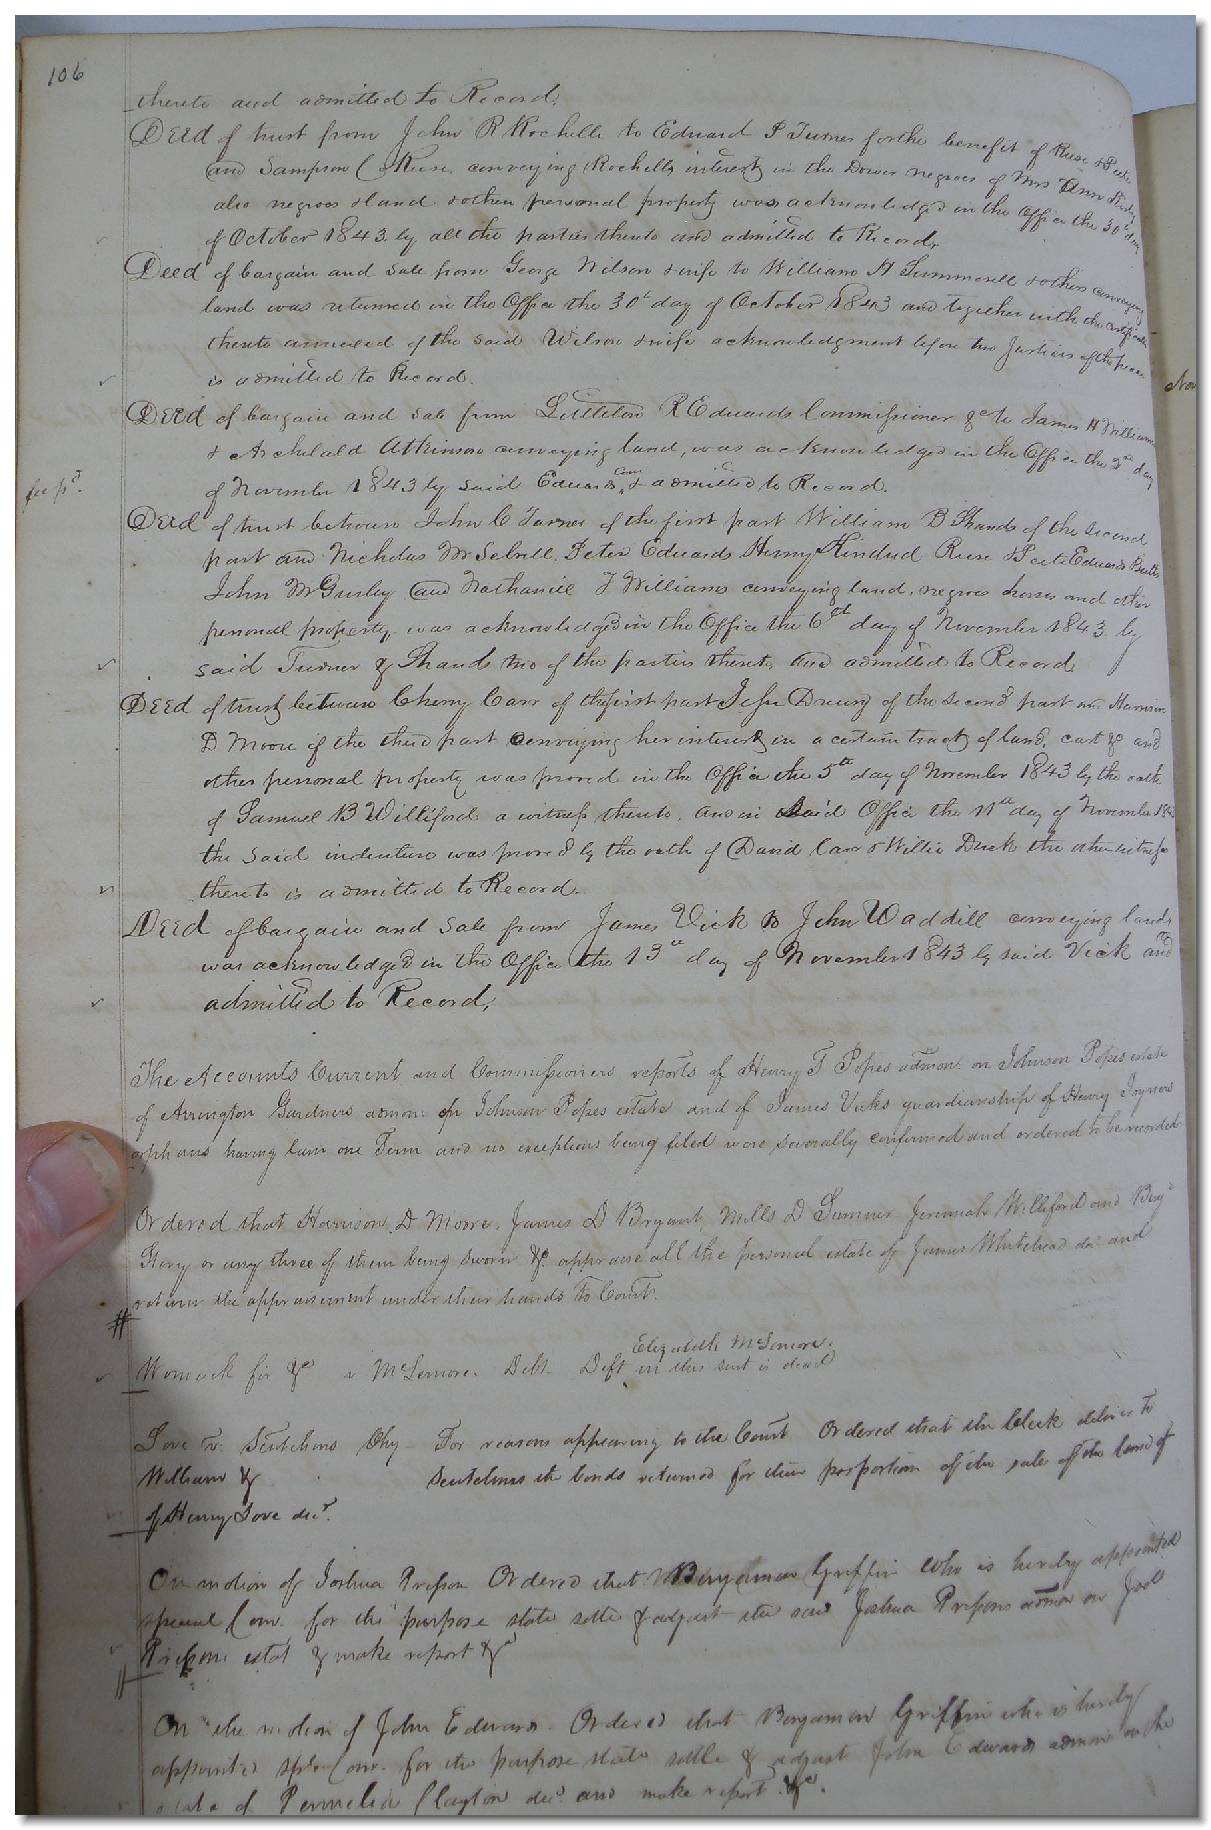 106
thereto and admitted to Record.
Deed of trust from John R Rochelle to Edward P Turner for the benefit of Reese &
and Sampson C Reese conveying Rochells interest in the Dower negroes of Mrs Ann
also negroes & land & other personal property was acknowledged in the Office the 30th day
of October 1843 by all the parties thereto and admitted to Record,
Deed of bargain and sale from George Wilson & wife to William H Summerell & others conveying
land was returned in the Office the 30t day of October 1843 and together with the certificate
thereto annexed of the said Wilson & wife acknowledgment before two Justices of the peace
is admitted to Record.
Nov
Deed of bargain and sale from Littleton R Edwards Commissioner &c to James H William
& Archelald Atkinson conveying land, was acknowledged in the Office the day
fee pd.
of November 1843 by said Edwards Com & admitted to Record.
Deed of trust between John C Turner of the first part William B Shands of the second
part and Nicholas M Sebrell Peter Edwards Henry Kindred Reese & Edwards Butts
John McGurley and Nathaniel T Williams conveying land, negroes horses and other
personal property was acknowledged in the Office the 6th day of November 1843 by
said Turner & Shands two of the parties thereto, and admitted to Record
Deed of trust between Cherry Carr of the first part Jesse Drewry of the second part and Harrison
D Moore of the third part conveying her interest in a certain tract of land, cart &c and
other personal property was proved in the Office the 5th day of November 1843 by the oath
of Samuel B Williford a witness thereto, and in said Office the 11th day of November 1843
the said indenture was proved by the oath of David Carr & Willie Duck the other witness
thereto is admitted to Record.
Deed of bargain and sale from James Vick to John Waddill conveying land,
was acknowledged in the Office the 13th day of November 1843 by said Vick and
admitted to Record,
The Accounts Current and Commissioners reports of Henry T Popes admon: on Johnson Popes estate
of Arrington Gardners admon: on Johnson Popes estate and of James Vicks guardianship of Henry Joyners
orphans having lain one Term and no exceptions being filed were severally confirmed and ordered to be recorded
Ordered that Harrison D Moore, James D Bryant, Mills D Sumner Jeremiah Williford and Benjn
Story or any three of them being sworn &c appraise all the personal estate of James Whitehead dec and
return the appraisement under their hands to Court.
Elizabeth McLemore.
Womack for &c v McLemore. Debt. Deft in this suit is dead
Love v. Scutchens Chy For reasons appearing to the Court Ordered that the Clerk deliver to
William & Scutchens the bonds returned for their proportion of the sale of the land of
of Henry Love decd.
On motion of Joshua Presson Ordered that Benjamin Griffin who is hereby appointed
special Com. for the purpose state settle & adjust the said Joshua Pressons admon on Joel
Pressons estat & make report &c
On the motion of John Edwards. Ordered that Benjamin Griffin who is hereby
appointed Com. for the purpose state settle & adjust John Edwards admon on the
estate of Permelia Clayton decd. and make report &c.